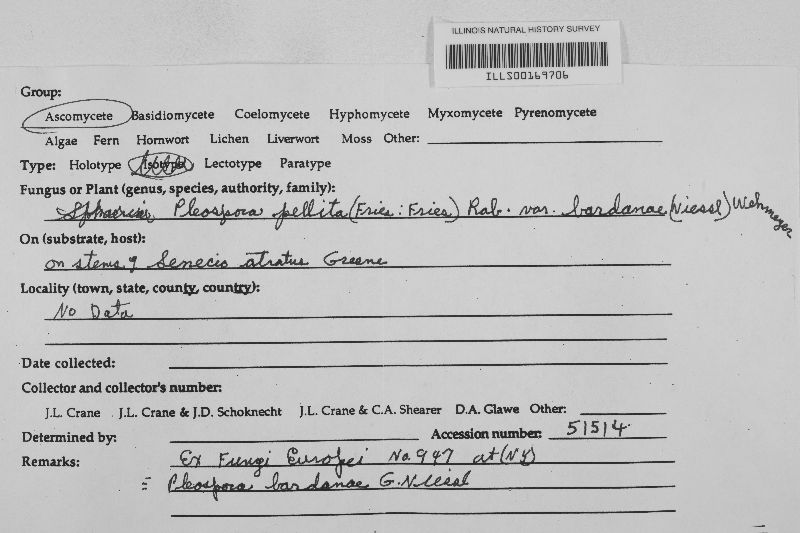 ILLINOIS NATURAL HISTORY SURVEY
ILLS00169706
Group:
Ascomycete Basidiomycete Coelomycete Hyphomycete Myxomycete Pyrenomycete
Algae Fern Hornwort Lichen Liverwort Moss Other:
Type: Holotype Isotype Lectotype Paratype
Fungus or Plant (genus, species, authority, family):
Pleospora pellita (Fries: Fries) Rab. var. bardanae (Niessl) Wehmeyer
On (substrate, host):
on stems of Senecio atratus Greene
Locality (town, state, county, country):
No Data
Date collected:
Collector and collector's number:
J.L. Crane J.L. Crane & J.D. Schoknecht J.L. Crane & C.A. Shearer D.A. Glawe Other:
Determined by: Accession number: 51514
Remarks: Ex Fungi Europei No. 947 at (NY)
= Pleospora bardanae G. Niessl